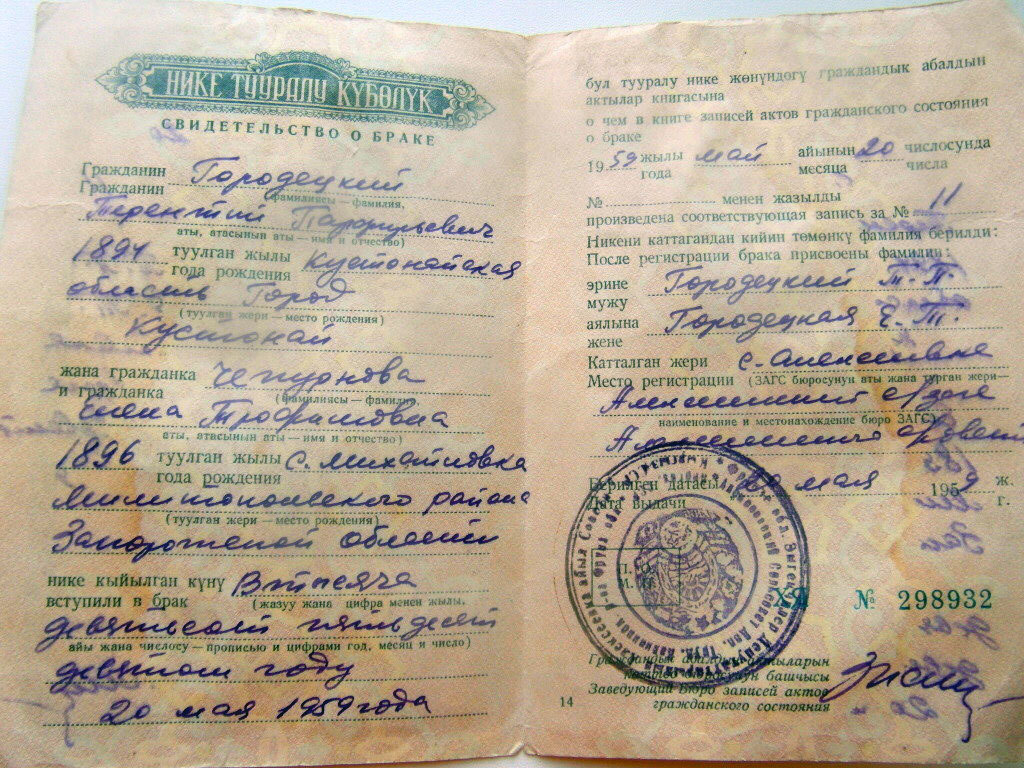 НИКЕ ТУУРАЛУ КҮБӨЛҮК
СВИДЕТЕЛЬСТВО О БРАКЕ
Гражданин
Гражданин Городецкий
(фамилиясы — фамилия,
Терентий Парфильевич
аты, атасынын аты — имя и отчество)
1894 туулган жылы Кустонайская
года рождения
область Город
(туулган жери — место рождения)
Кустонай
жана гражданка Чепурнова
и гражданка (фамилиясы — фамилия,
Елена Трофимовна
аты, атасынын аты — имя и отчество)
1896 туулган жылы с. Михайловка
года рождения
района
(туулган жери — место рождения)
Запорожской области
нике кыйылган күнү В тысяча
вступили в брак (жазуу жана цифра менен жылы,
девятьсот пятьдесят
айы жана числосу — прописью и цифрами год, месяц и число)
девятом году
20 мая 1959 года
бул тууралу нике жөнүндөгү граждандык абалдын
актылар книгасына
о чем в книге записей актов гражданского состояния
о браке
1959 жылы май айынын 20 числосунда
года месяца числа
№ менен жазылды
произведена соответствующая запись за № 11
Никени каттагандан кийин төмөнкү фамилия берилди:
После регистрации брака присвоены фамилии:
эрине Городецкий Т. П.
мужу
аялына Городецкая Е. Т.
жене
Катталган жери с.
Место регистрации (ЗАГС бюросунун аты жана турган жери—
наименование и местонахождение бюро ЗАГС)
Берилген датасы 20 мая 1959 ж.
Дата выдачи г.
М.
№ 298932
Граждандык абалдын актыларын
башчысы
Заведующий Бюро записей актов
гражданского состояния
14